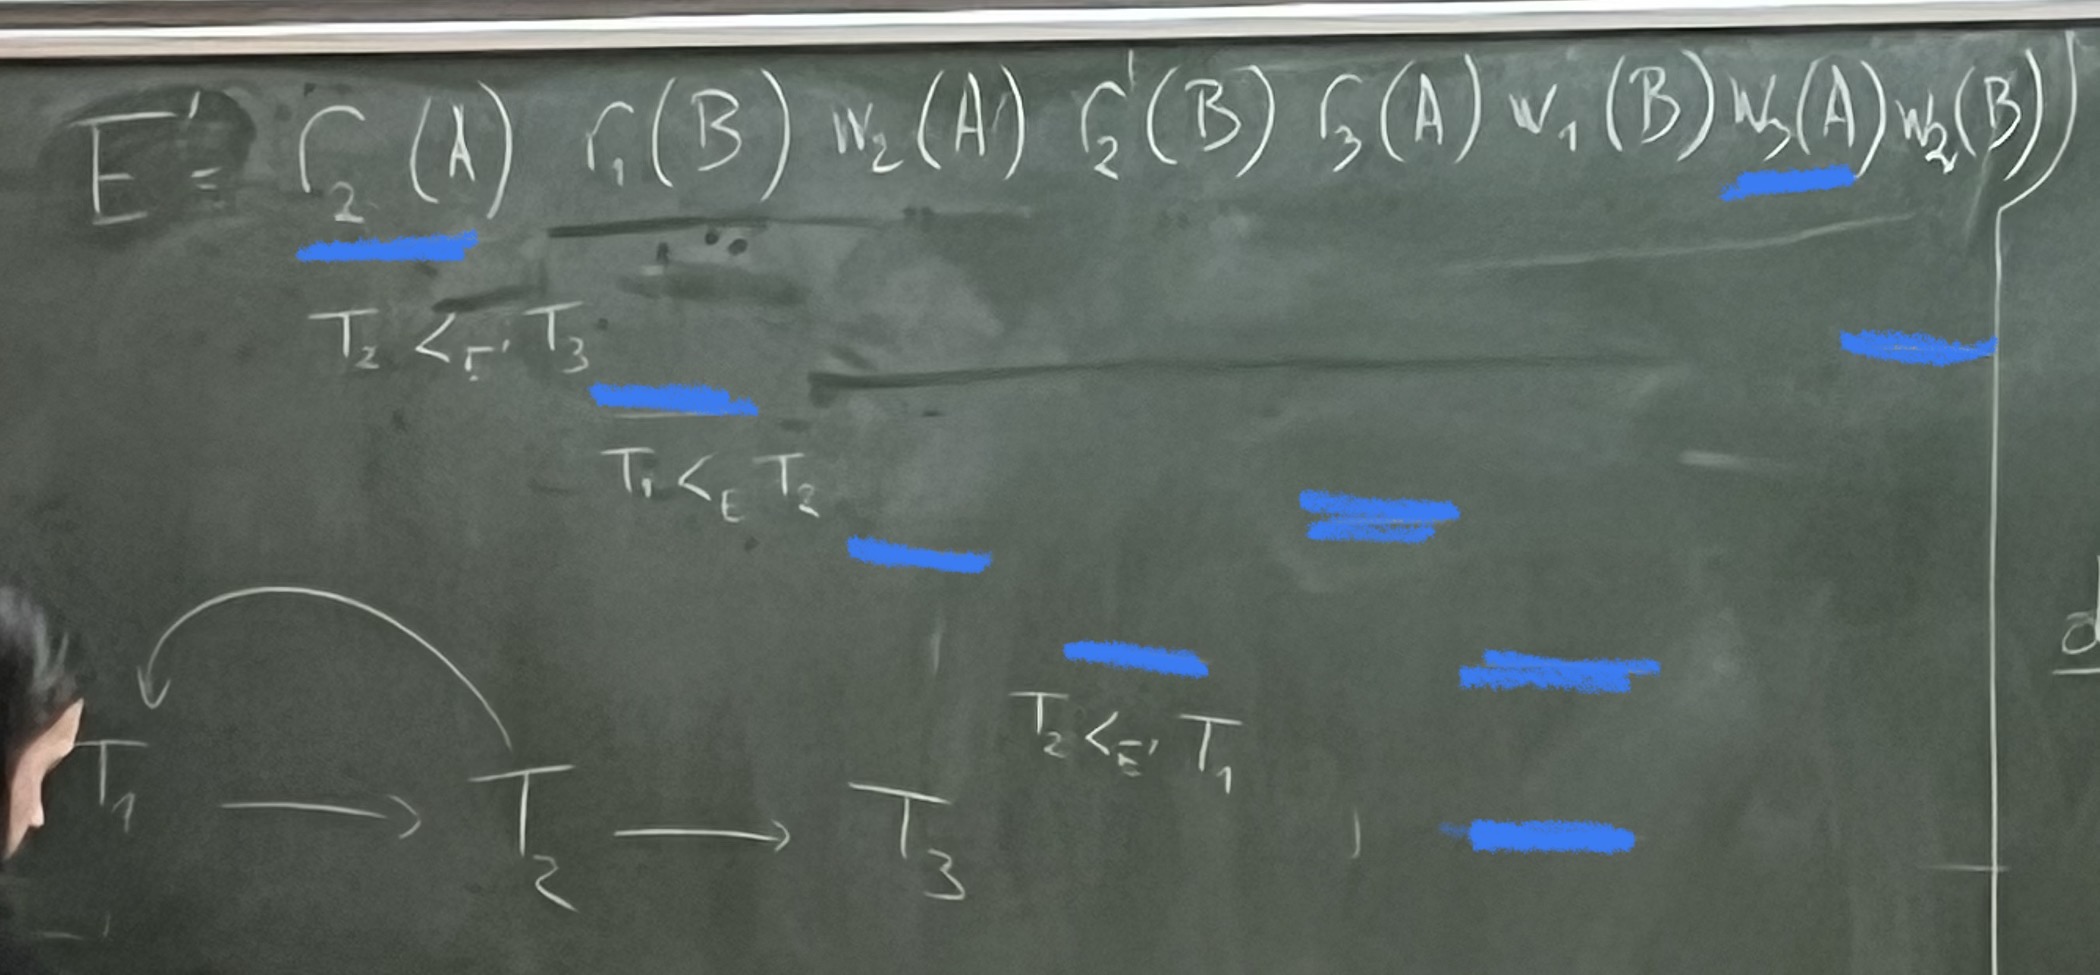 E' = r₂(A) r₁(B) w₂(A) r₂(B) r₃(A) w₁(B) w₃(A) w₂(B)
T₂ <E' T₃
T₁ <E T₂
T₂ <E' T₁
T₁ → T₂ → T₃
d